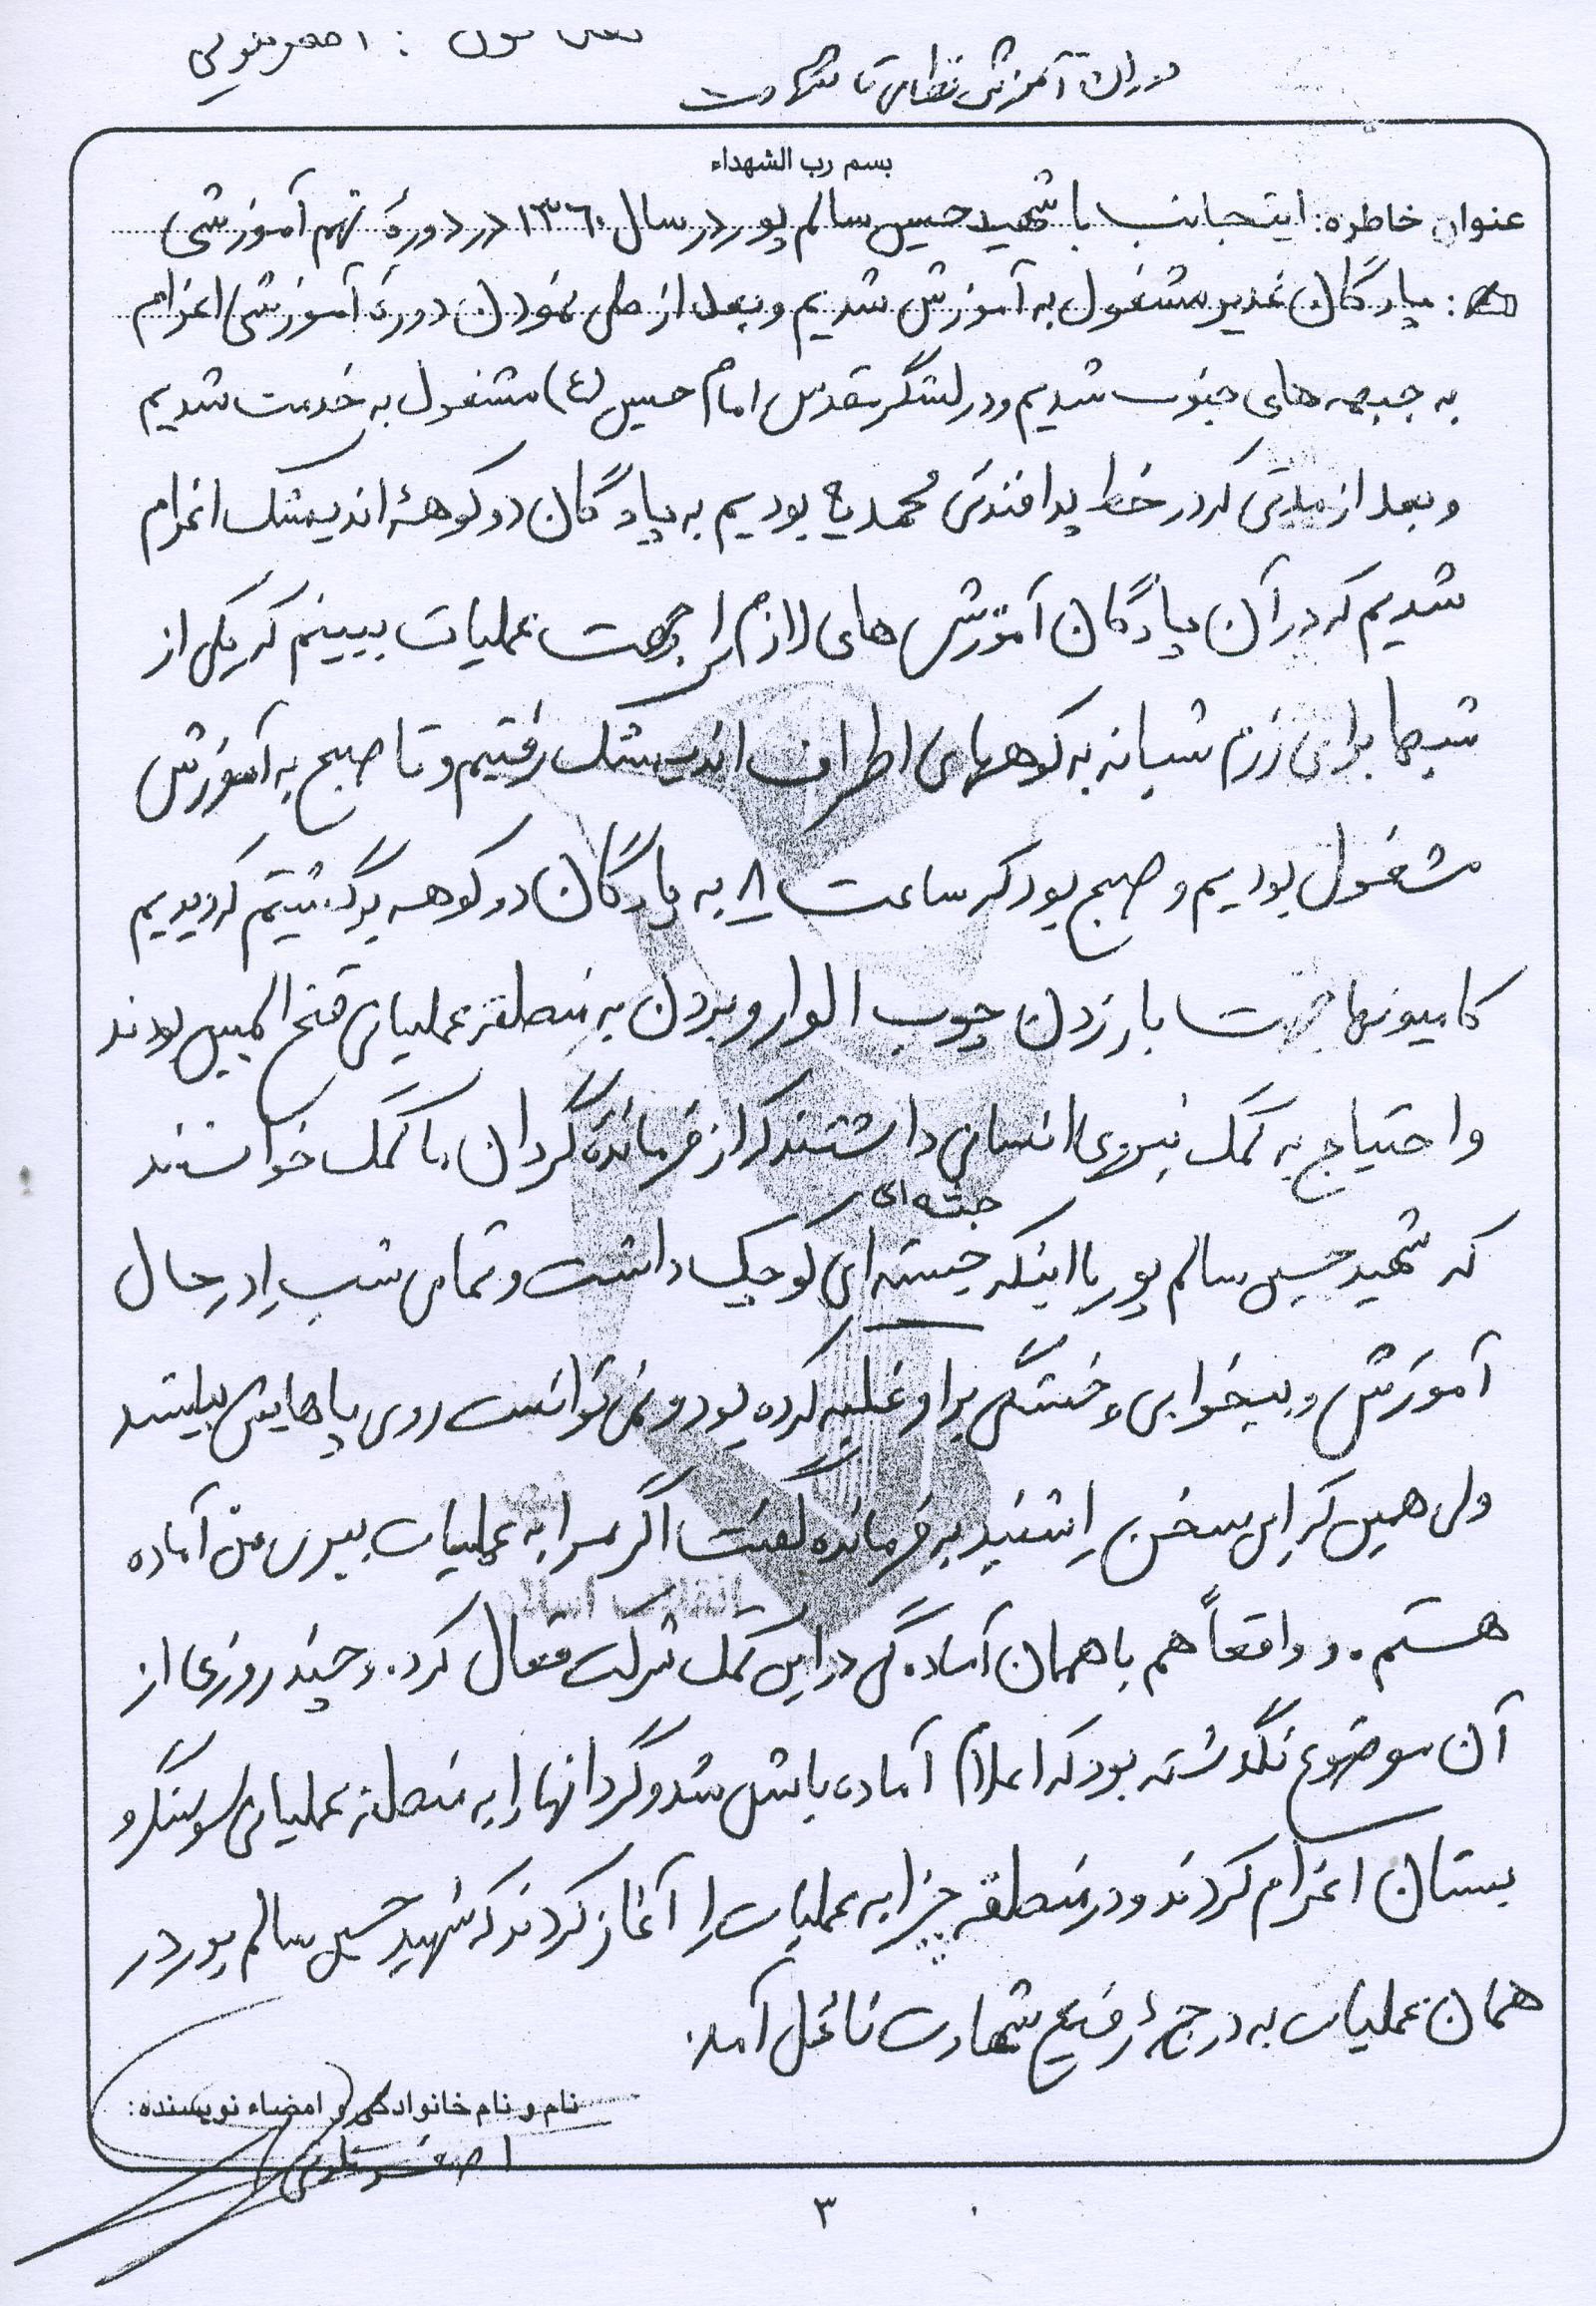 دوران آموزش نظامی تا شهادت
بسم رب الشهداء
عنوان خاطره: اینجانب با شهید حسین سالم پور در سال ۱۳۶۰ در دورۀ نهم آموزشی
: پادگان غدیر مشغول به آموزش شدیم و بعد از طی نمودن دورۀ آموزشی اعزام
به جبهه های جنوب شدیم و در لشگر مقدس امام حسین (ع) مشغول به خدمت شدیم
و بعد از مدتی که در خط پدافندی محمدیه بودیم به پادگان دوکوهۀ اندیمشک اعزام
شدیم که در آن پادگان آموزش های لازم را جهت عملیات ببینیم که یکی از
شبها برای رزم شبانه به کوههای اطراف اندیمشک رفتیم و تا صبح به آموزش
مشغول بودیم و صبح بود که ساعت ۸ به پادگان دوکوهه برگشتیم که دیدیم
کامیونها جهت بار زدن چوب الوار و بردن به منطقه عملیاتی فتح المبین بودند
و احتیاج به کمک نیروی انسانی داشتند که از فرماندۀ گردان ما کمک خواستند
جثه ای
که شهید حسین سالم پور با اینکه جیسته ای کوچک داشت و تمامی شب را در حال
آموزش و بیخوابی و خستگی بر او غلبه کرده بود و نمی توانست روی پاهایش بایستد
ولی همین که این سخن را شنید به فرمانده گفت اگر مرا به عملیات ببری من آماده
هستم. و واقعاً هم با همان آمادگی در این کمک شرکت فعال کرد. و چند روزی از
آن موضوع نگذشته بود که اعلام آماده باش شد و گردانها را به منطقه عملیاتی سوسنگرد
بستان اعزام کردند و در منطقه چزابه عملیات را آغاز کردند که شهید حسین سالم پور در
همان عملیات به درجۀ رفیع شهادت نائل آمد.
نام و نام خانوادگی و امضاء نویسنده:
۳